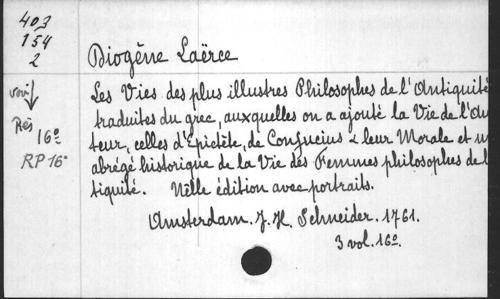 403
154
2
Diogène Laërce
Les Vies des plus illustres Philosophes de l'Antiquité
traduites du grec, auxquelles on a ajouté la Vie de l'Au
teur, celles d'Epictète, de Confucius & leur Morale et un
abrégé historique de la Vie des Femmes philosophes de l
tiquité. Nlle édition avec portraits.
Amsterdam. J. H. Schneider. 1761.
3 vol. 16º.
voir
Rés
16º
RP 16º